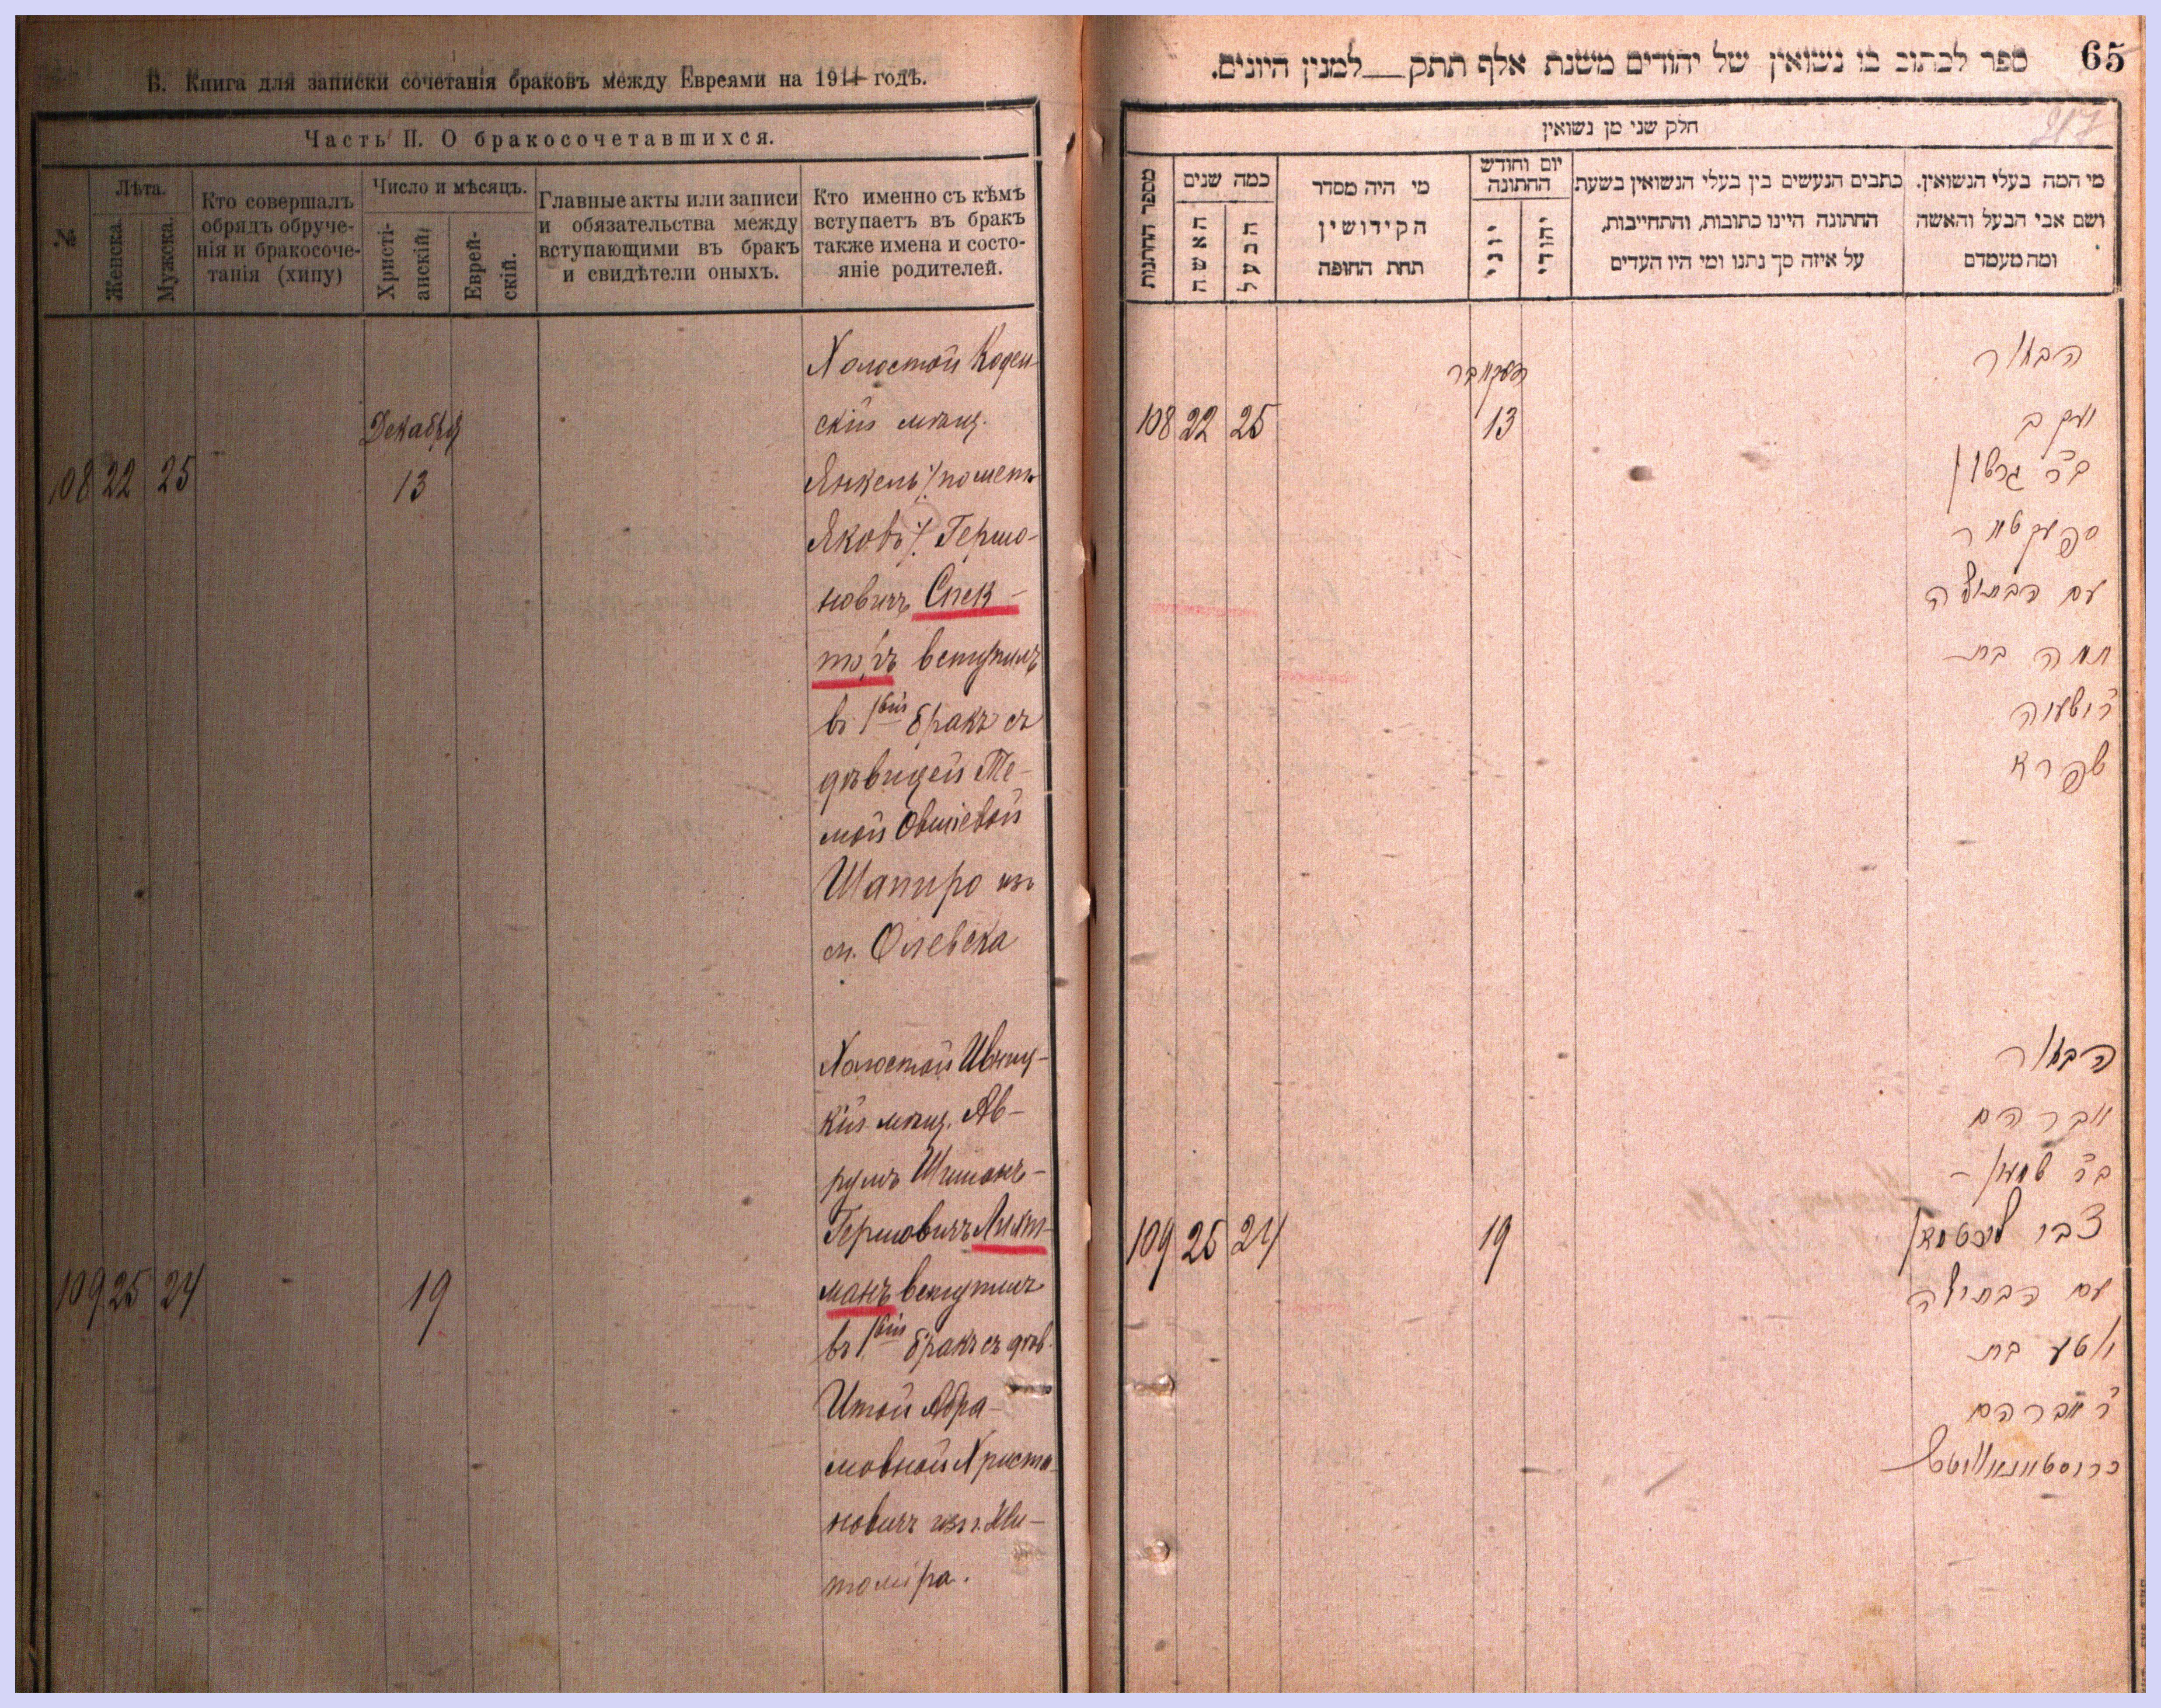 Б. Книга для записки сочетанія браковъ между Евреями на 1911 годъ.
Часть II. О бракосочетавшихся.
№
Лѣта.
Женска.
Мужска.
Кто совершалъ
обрядъ обруче-
нія и бракосоче-
танія (хипу)
Число и мѣсяцъ.
Христі-
анскій
Еврей-
скій.
Главные акты или записи
и обязательства между
вступающими въ бракъ
и свидѣтели оныхъ.
Кто именно съ кѣмъ
вступаетъ въ бракъ
также имена и состо-
яніе родителей.
Декабря
108 22 25 13
Холостой Коден-
скій мѣщ.
Янкель /: пометъ
Яковъ /: Гершо-
новичъ Спек-
торъ вступилъ
въ 1вый бракъ съ
дѣвицей Те-
мой Овшіевой
Шапиро изъ
м. Олевска
109 25 24 19
Холостой Ивниц-
кій мѣщ. Ав-
румъ Шимонъ-
Гершовичъ Лихт-
манъ вступилъ
въ 1вый бракъ съ дѣв.
Итой Абра-
мовной Христа-
новичъ изъ г. Жи-
томира.
65
ספר לכתוב בו נשואין של יהודים משנת אלף תתק למנין היונים.
217
חלק שני מן נשואין
מספר החתנות
כמה שנים
האשה
הבעל
מי היה מסדר
הקידושין
תחת החופה
יום וחודש
החתונה
יוני
יהודי
כתבים הנעשים בין בעלי הנשואין בשעת
החתונה היינו כתובות, והתחייבות,
על איזה סך נתנו ומי היו העדים
מי המה בעלי הנשואין.
ושם אבי הבעל והאשה
ומה מעמדם
108 22 25 13
הבחור
יעקב
ב״ר גרשון
ספעקטאר
עם הבתולה
תמה בת
ר׳ ישעיה
שפירא
109 25 24 19
הבחור
אברהם
ב״ר שמעון-
צבי ליכטמאן
עם הבתולה
איטע בת
ר׳ אברהם